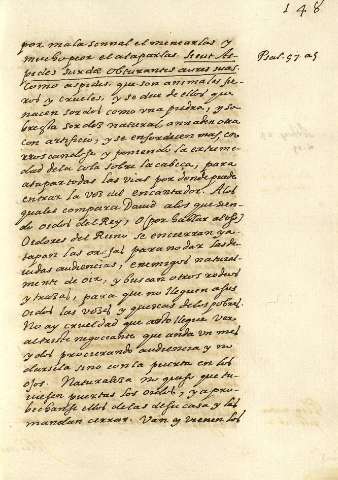 148
por mala sennal el menearlas y
mucho peor el ataparlas. Sicut As-
pides surdae obturantes aures suas.
Psal. 57 a 5
Como aspides, que son animales fie-
ros y crueles, y se dice de ellos que
nacen sordos como una piedra, y so-
bre esta sordez natural annaden otra
con artificio, y se ensordecen mas, co-
rroscandose y poniendo la extremi-
dad de la cola sobre la cabeça, para
atapar todas las vias por donde puede
entrar la voz del encantador. A los
quales compara David a los que sien-
do oidos del Rey, O (por hablar assi)
Oidores del Reino se encierran y a-
tapan las orejas para no dar las de-
vidas audiencias, enemigos natural-
mente de oir, y buscan otros rodeos
y tretas, para que no lleguen a sus
oidos las vozes y quexas de los pobres.
No ay crueldad que a esto llegue ver
al triste negociante que anda un mes
y dos procurando audiencia y no
darsela sino con la puerta en los
ojos. Naturaleza no quiso que tu-
viesen puertas los oidos, y apro-
bechanse ellos de las de su casa y las
mandan cerrar. Van y vienen los